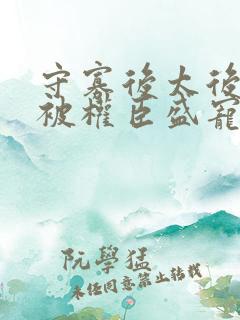 守寡後太後
被權臣盛寵
阮學猛
未經同意禁止轉載